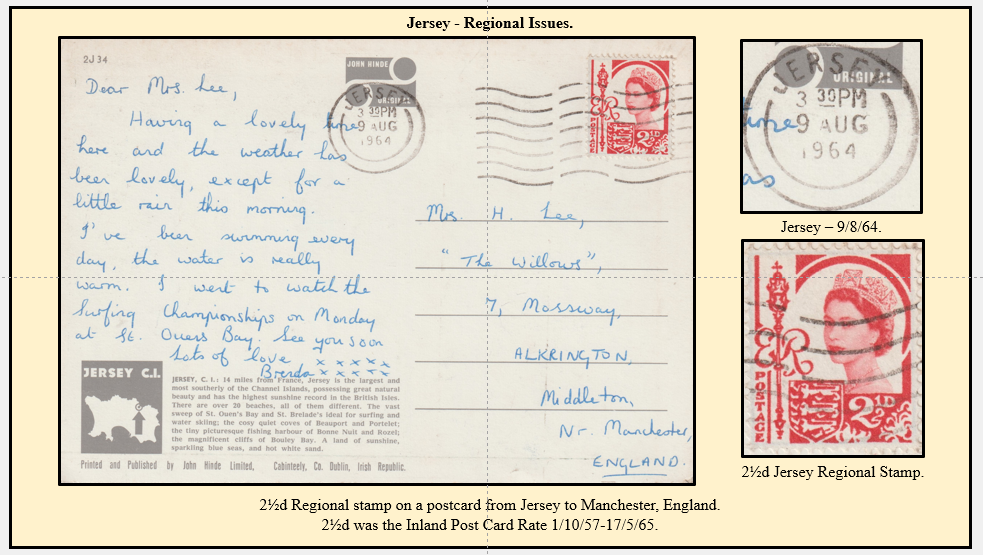 Jersey - Regional Issues.
2J34
JOHN HINDE
ORIGINAL
JERSEY
3 30PM
9 AUG
1964
POSTAGE
2½D
Dear Mrs. Lee,
Having a lovely time
here and the weather has
been lovely, except for a
little rain this morning.
I've been swimming every
day, the water is really
warm. I went to watch the
Surfing Championships on Monday
at St. Ouens Bay. See you soon
Lots of love, x x x x x
Brenda x x x x x
Mrs. H. Lee,
"The Willows",
7, Mossway,
ALKRINGTON,
Middleton,
Nr. Manchester,
ENGLAND.
JERSEY C.I.
JERSEY, C. I.: 14 miles from France, Jersey is the largest and
most southerly of the Channel Islands, possessing great natural
beauty and has the highest sunshine record in the British Isles.
There are over 20 beaches, all of them different. The vast
sweep of St. Ouen's Bay and St. Brelade's ideal for surfing and
water skiing; the cosy quiet coves of Beauport and Portelet;
the tiny picturesque fishing harbour of Bonne Nuit and Rozel;
the magnificent cliffs of Bouley Bay. A land of sunshine,
sparkling blue seas, and hot white sand.
Printed and Published by John Hinde Limited, Cabinteely, Co. Dublin, Irish Republic.
JERSEY
ORIGINAL
3 30PM
time
9 AUG
1964
as
Jersey – 9/8/64.
POSTAGE
2½D
2½d Jersey Regional Stamp.
2½d Regional stamp on a postcard from Jersey to Manchester, England.
2½d was the Inland Post Card Rate 1/10/57-17/5/65.